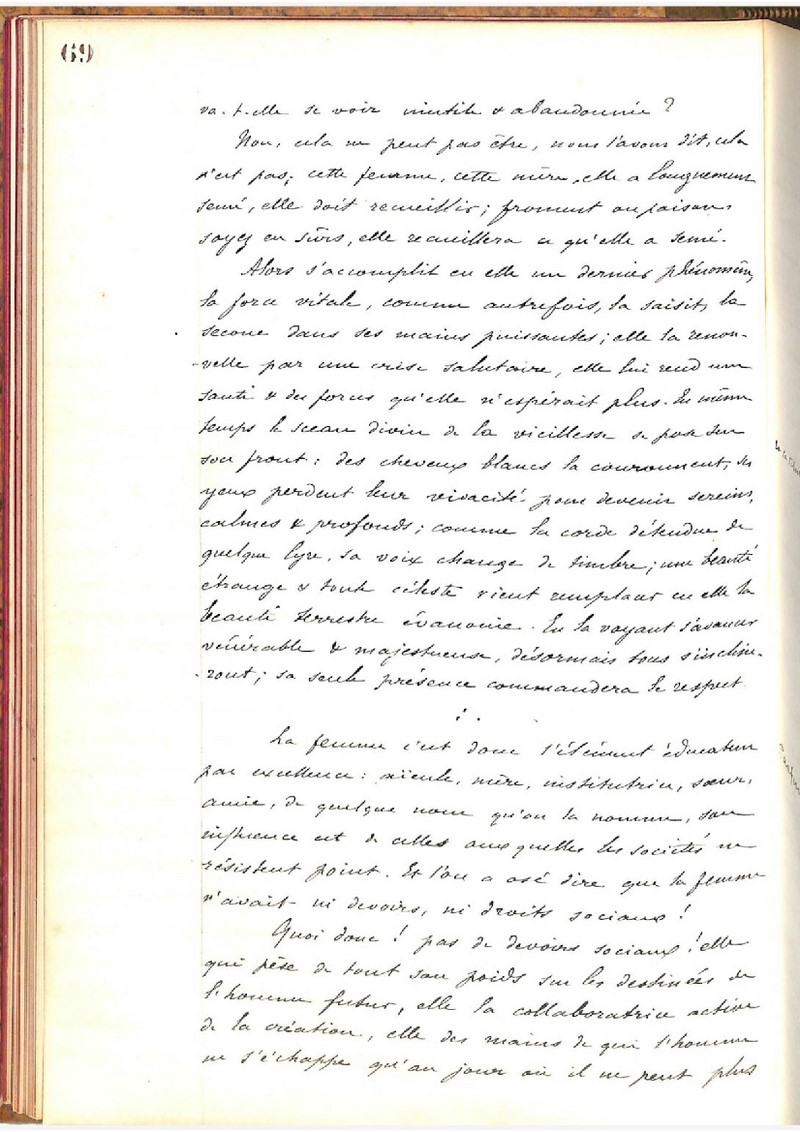 69
va-t-elle se voir inutile & abandonnée ?
Non, cela ne peut pas être, nous l'avons dit, cela
n'est pas; cette femme, cette mère, elle a longuement
semé, elle doit recueillir; froment ou poison,
soyez en sûrs, elle recueillera ce qu'elle a semé.
Alors s'accomplit en elle un dernier phénomène,
la force vitale, comme autrefois, la saisit, la
secoue dans ses mains puissantes; elle la renou-
-velle par une crise salutaire, elle lui rend une
santé & des forces qu'elle n'espérait plus. En même
temps le sceau divin de la vieillesse se pose sur
son front : des cheveux blancs la couronnent, ses
yeux perdent leur vivacité pour devenir sereins,
calmes & profonds; comme la corde détendue de
quelque lyre, sa voix change de timbre; une beauté
étrange & toute céleste vient remplacer en elle la
beauté terrestre évanouie. En la voyant s'avancer
vénérable & majestueuse, désormais tous s'incline-
-ront; sa seule présence commandera le respect.
La femme c'est donc l'élément éducateur
par excellence : aïeule, mère, institutrice, sœur,
amie, de quelque nom qu'on la nomme, son
influence est de celles auxquelles les sociétés ne
résistent point. Et l'on a osé dire que la femme
n'avait ni devoirs, ni droits sociaux !
Quoi donc ! pas de devoirs sociaux ! elle
qui pèse de tout son poids sur les destinées de
l'homme futur, elle la collaboratrice active
de la création, elle des mains de qui l'homme
ne s'échappe qu'au jour où il ne peut plus